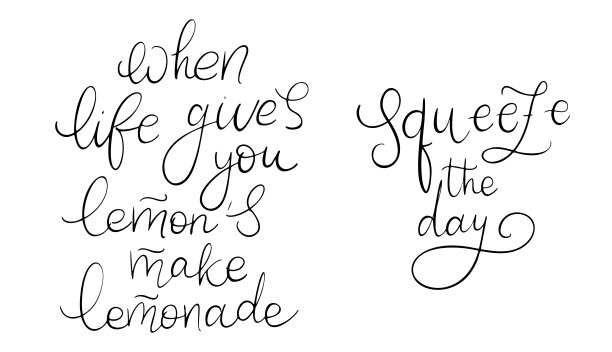 when
life gives
you
lemon's
make
lemonade
squeeze
the
day